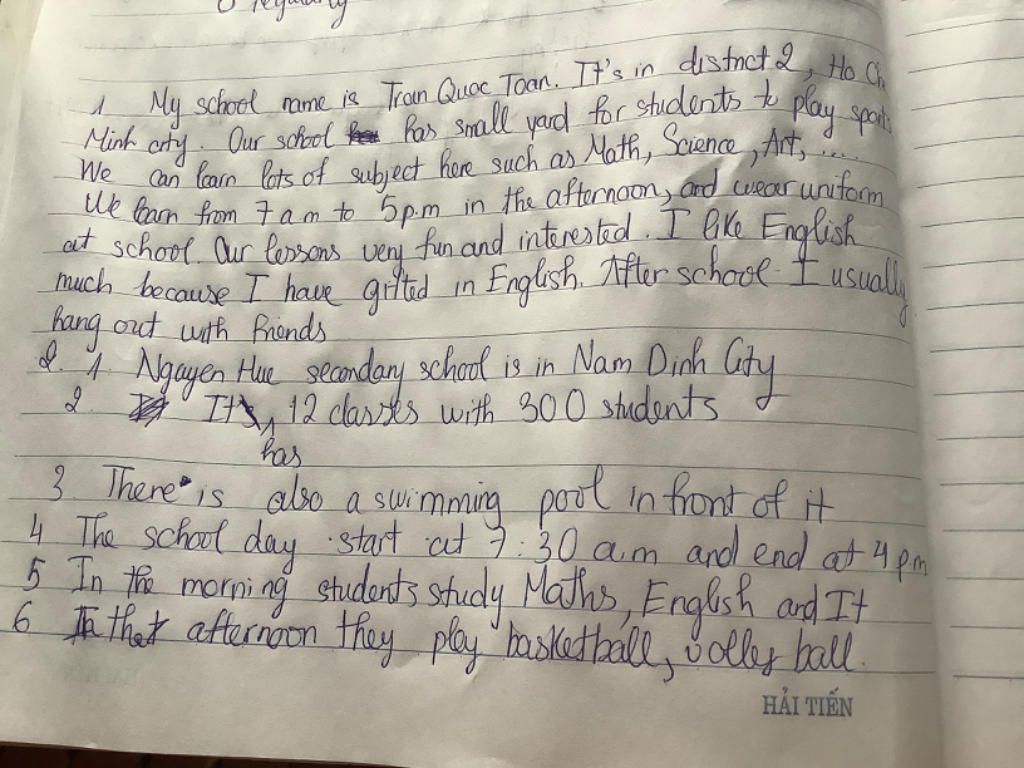 regularly
1 My school name is Tran Quoc Toan. It's in district 2, Ho Ch
Minh city. Our school has small yard for students to play sports
We can learn lots of subject here such as Math, Science, Art, ....
We learn from 7 a m to 5 p.m in the afternoon, and wear uniform
at school. Our lessons very fun and interested. I like English
much because I have gifted in English. After school I usually
hang out with friends
2. 1. Nguyen Hue secondary school is in Nam Dinh City
2. It has 12 classes with 300 students
3 There is also a swimming pool in front of it
4 The school day start at 7:30 a.m and end at 4 pm
5 In the morning students study Maths, English and It
6 In the afternoon they play basketball, volley ball.
HẢI TIẾN